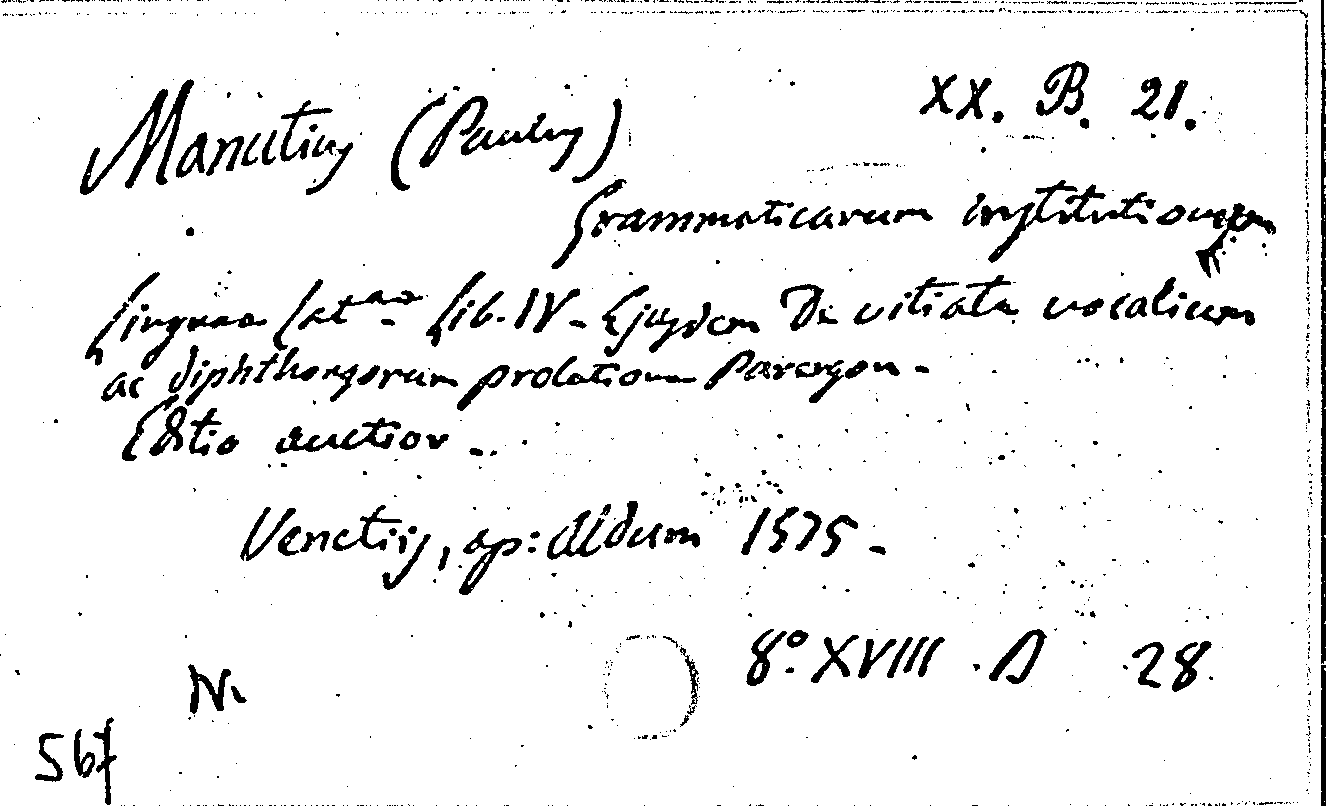 XX. B. 21.
Manutius (Paulus)
Grammaticarum institutionum
Linguae Lat.ae Lib. IV - Ejusdem De vitiata vocalium
ac diphthongorum prolatione Parergon -
Editio auctior -
Venetiis, ap: Aldum 1575 -
8º. XVIII . A 28
N.
567